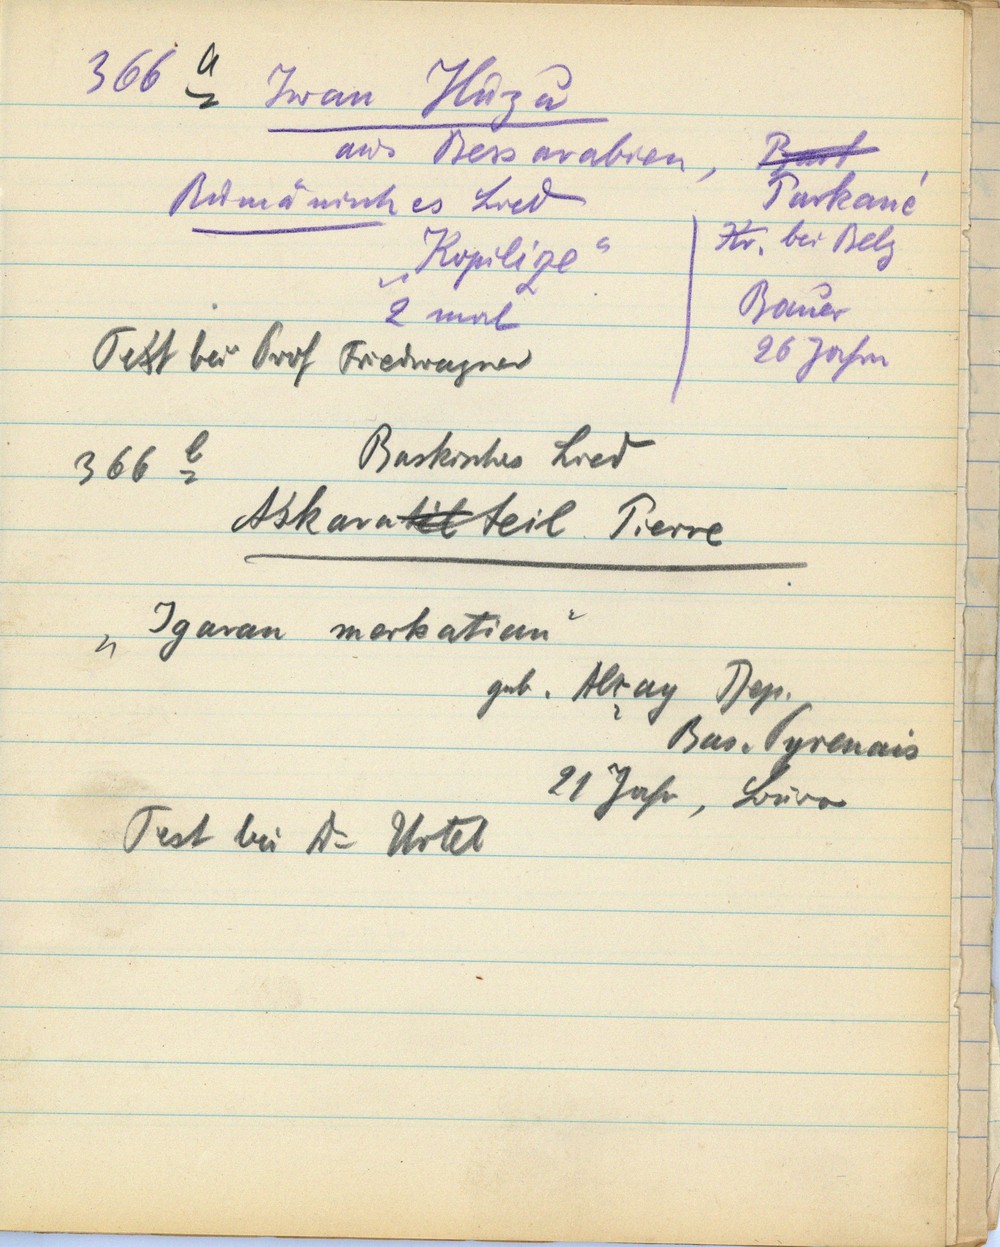 366 a Iwan Huzu
aus Bessarabien,
Rumänisches Lied
„Kopilize“
2 mal
Parkané
Kr. bei Belz
Bauer
26 Jahre
Text bei Prof Friedwagner
366 b Baskisches Lied
Askarateil Pierre
„Igaran merkatian“
geb. Alçay Dep.
Bas. Pyrenais
21 Jahr,
Text bei Dr Urtel